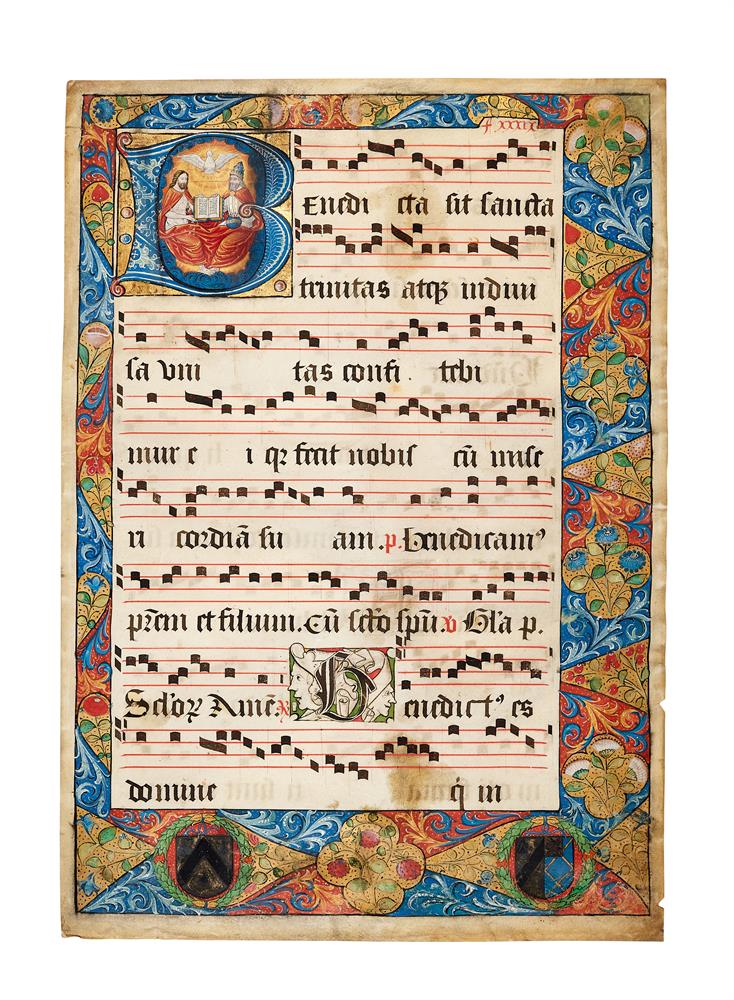 f xxxix
BEnedi cta sit sancta
trinitas atqꝫ indiui
sa vni tas confi. tebi
mur e i qꝛ fecit nobis cū mise
ri cordiā su am .p. Benedicamꝰ
p̄rem et filium. Cū sc̄to sp̄u. v Gl̄a p.
Sc̄loꝝ Amē. Benedictꝰ es
domine q̇ in